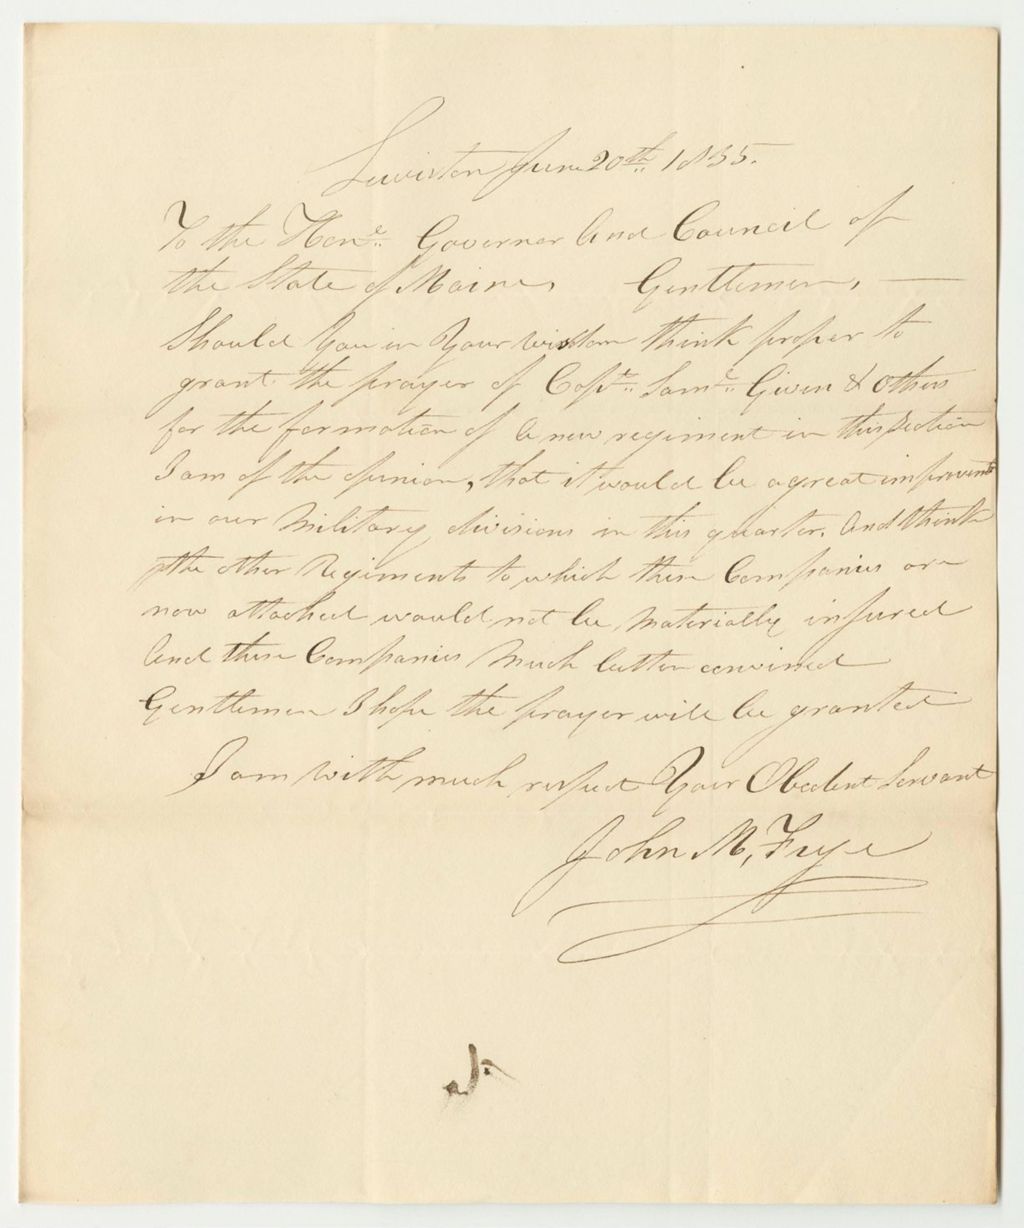 Lewiston June 20th 1835.
To the Hone. Governor And Council of
the State of Maine, Gentlemen, —
Should You in Your wisdom think proper to
grant the prayer of Capt. Saml. Given & others
for the formation of A new regiment in this Section
I am of the opinion, that it would be a great improvmt
in our Military, divisions in this quarter. And think
the other Regiments to which these Companies are
now attached would not be, Materially injured
And these Companies Much better convined
Gentlemen I hope the prayer will be granted
I am with much respect Your Obedent Servant
John M, Frye